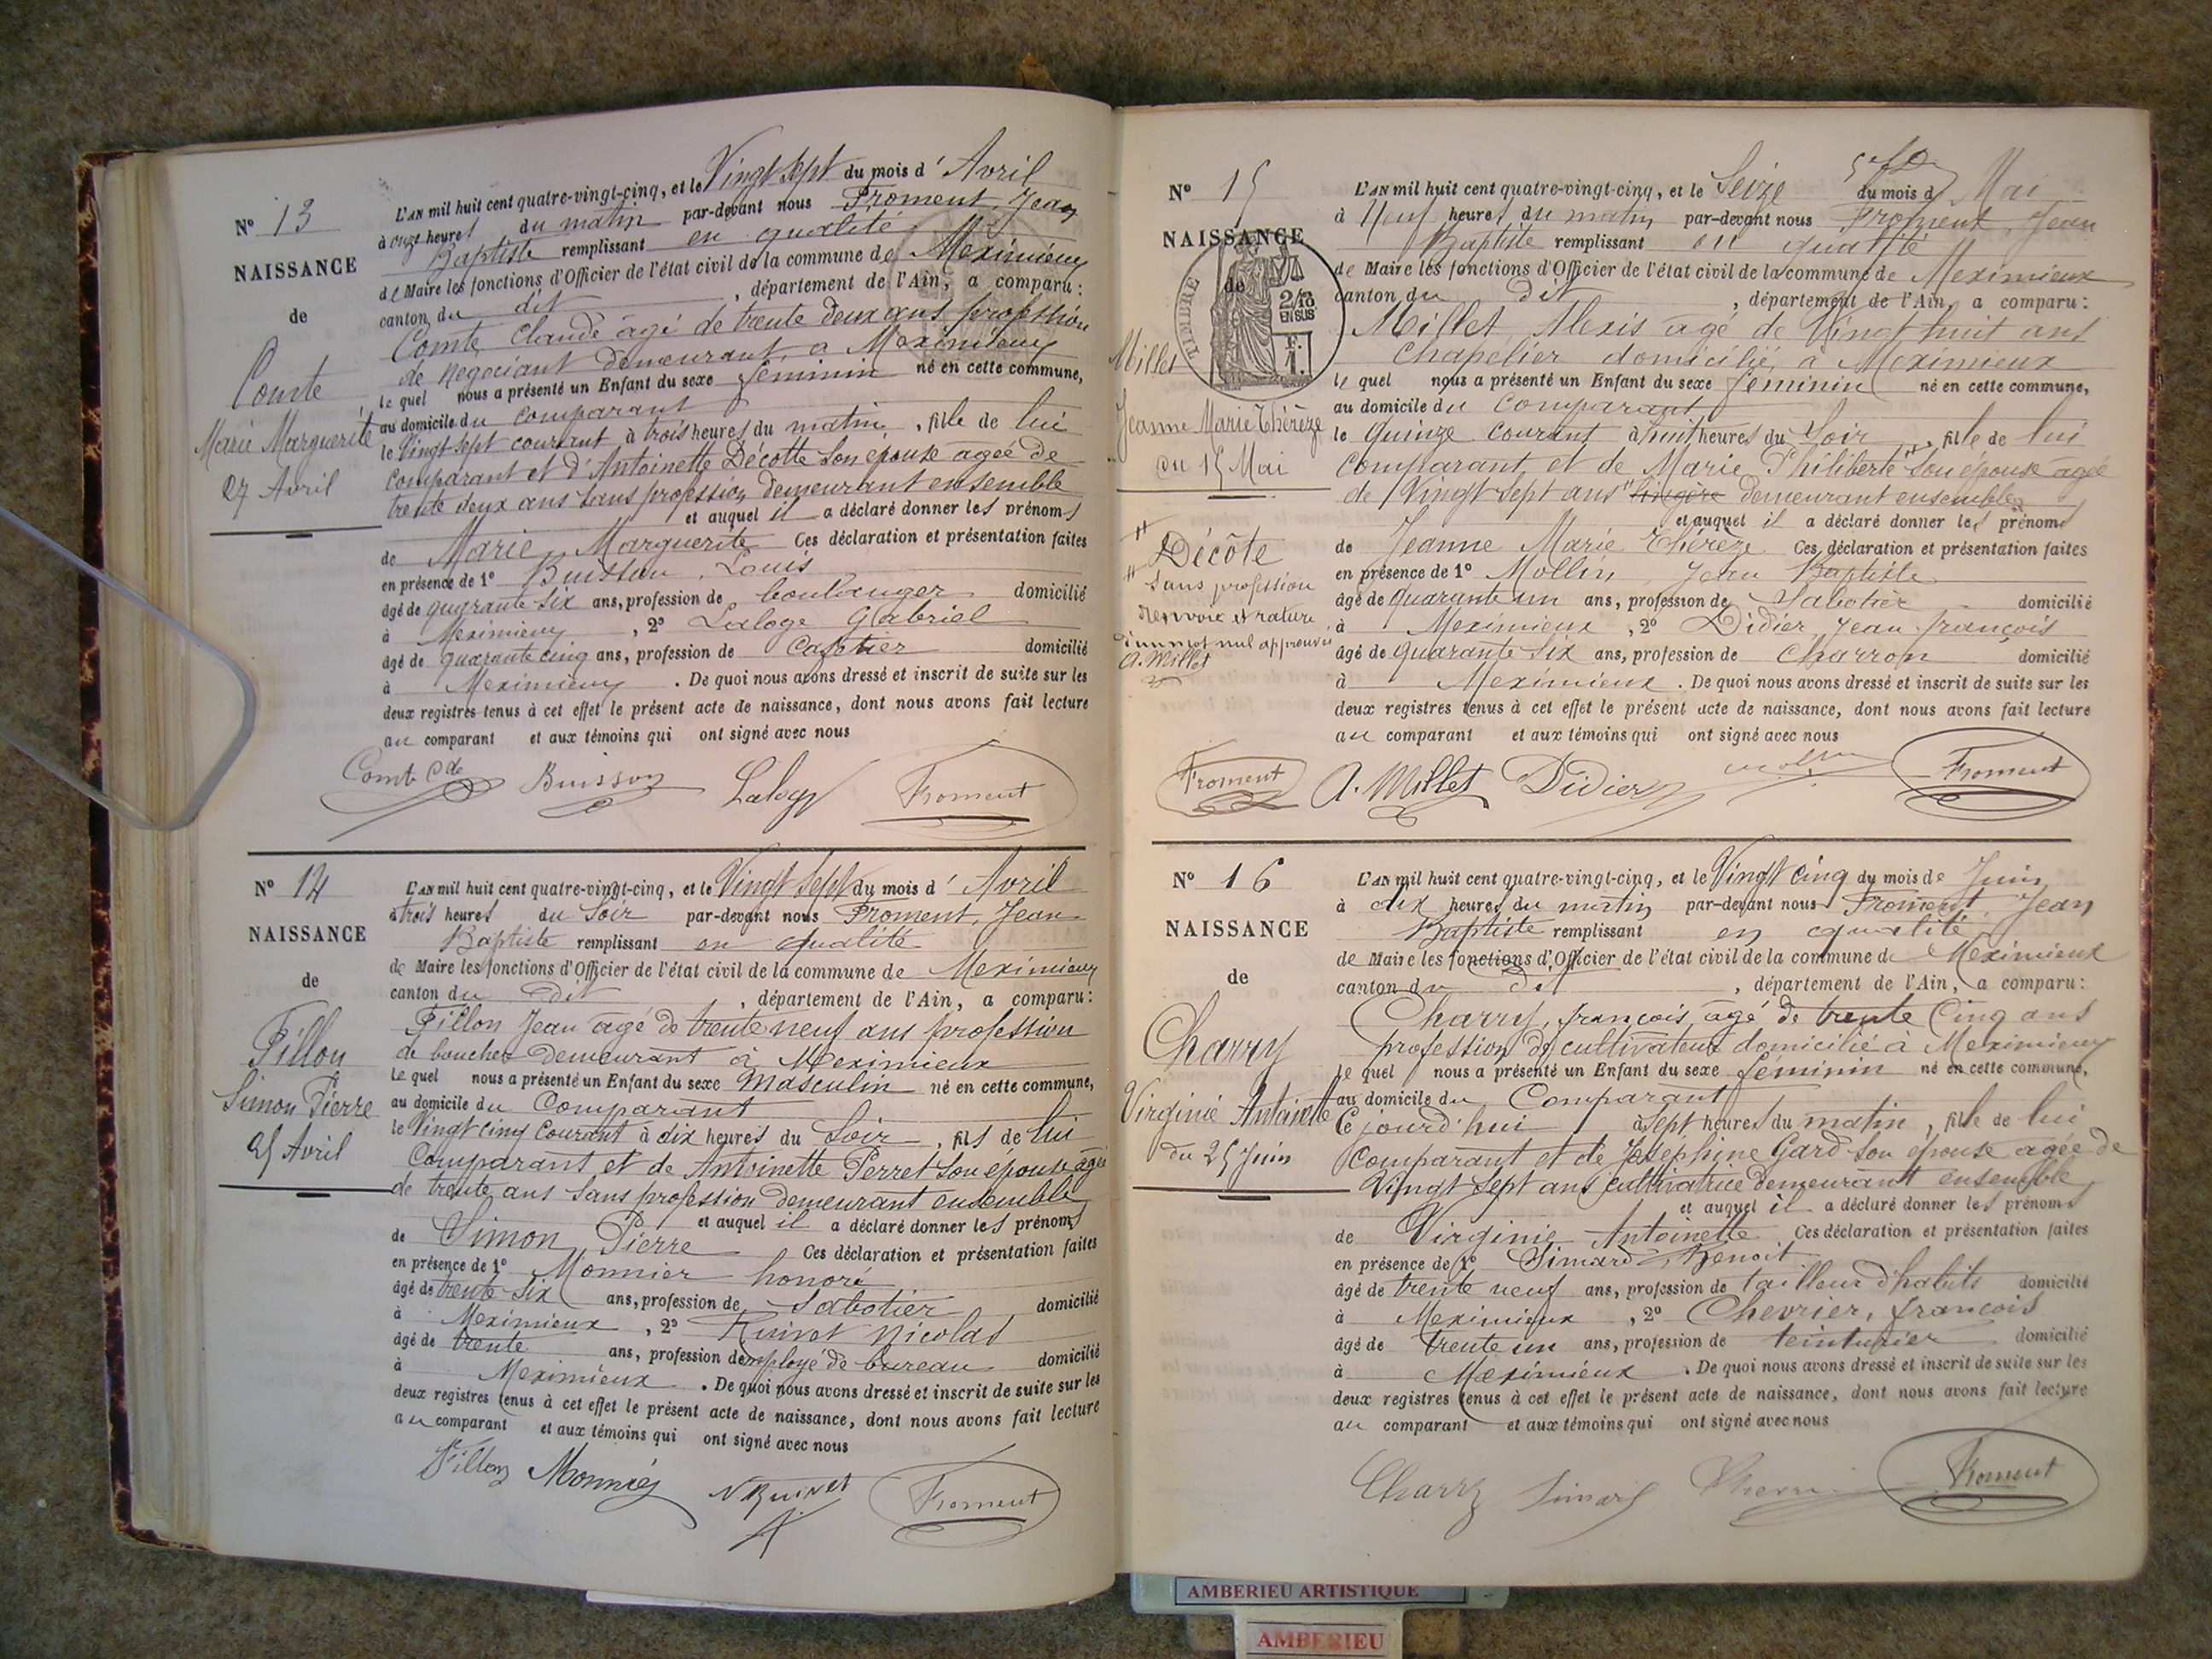 N° 13
NAISSANCE
de
Comte
Marie Marguerite
27 Avril
L'AN mil huit cent quatre-vingt-cinq, et le Vingt sept du mois d' Avril
à onze heures du matin par-devant nous Froment, Jean
Baptiste remplissant en qualité
de Maire les fonctions d'Officier de l'état civil de la commune de Meximieux
canton du dit , département de l'Ain, a comparu :
Comte Claude âgé de trente deux ans profession
de negociant demeurant a Meximieux
le quel nous a présenté un Enfant du sexe féminin né en cette commune,
au domicile du comparant
le Vingt sept courant à trois heures du matin , fille de lui
comparant et d'Antoinette Décotte son épouse agée de
trente deux ans sans profession demeurant ensemble
et auquel il a déclaré donner les prénoms
de Marie Marguerite Ces déclaration et présentation faites
en présence de 1° Buisson, Louis
âgé de quarante six ans, profession de boulanger domicilié
à Meximieux , 2° Laloge Gabriel
âgé de quarante cinq ans, profession de cafetier domicilié
à Meximieux . De quoi nous avons dressé et inscrit de suite sur les
deux registres tenus à cet effet le présent acte de naissance, dont nous avons fait lecture
au comparant et aux témoins qui ont signé avec nous
Comte Cde Buisson Laloge Froment
N° 14
NAISSANCE
de
Fillon
Simon Pierre
25 Avril
L'AN mil huit cent quatre-vingt-cinq, et le Vingt sept du mois d' Avril
à trois heures du soir par-devant nous Froment, Jean
Baptiste remplissant en qualité
de Maire les fonctions d'Officier de l'état civil de la commune de Meximieux
canton du dit , département de l'Ain, a comparu :
Fillon Jean âgé de trente neuf ans profession
de boucher demeurant à Meximieux
le quel nous a présenté un Enfant du sexe masculin né en cette commune,
au domicile du Comparant
le Vingt cinq courant à dix heures du soir , fils de lui
Comparant et de Antoinette Perret son épouse agée
de trente ans sans profession demeurant ensemble
et auquel il a déclaré donner les prénoms
de Simon Pierre Ces déclaration et présentation faites
en présence de 1° Monnier honoré
âgé de trente six ans, profession de Sabotier domicilié
à Meximieux , 2° Ruivet Nicolas
âgé de trente ans, profession de employé de bureau domicilié
à Meximieux . De quoi nous avons dressé et inscrit de suite sur les
deux registres tenus à cet effet le présent acte de naissance, dont nous avons fait lecture
au comparant et aux témoins qui ont signé avec nous
Fillon Monnier N Ruivet Froment
N° 15
NAISSANCE
de
TIMBRE
2/10 EN SUS
F. 1.
Millet
Jeanne Marie Thérèze
du 15 Mai
" Décôte
" sans profession
renvoi et rature
d'un mot nul approuvés
A. Millet
L'AN mil huit cent quatre-vingt-cinq, et le Seize du mois d Mai
à Neuf heures du matin par-devant nous Froment, Jean
Baptiste remplissant en qualité
de Maire les fonctions d'Officier de l'état civil de la commune de Meximieux
canton du dit , département de l'Ain, a comparu :
Millet, Alexis agé de Vingt huit ans
Chapelier domicilié à Meximieux
le quel nous a présenté un Enfant du sexe féminin né en cette commune,
au domicile du comparant
le Quinze courant à huit heures du soir , fille de lui
comparant et de Marie Philiberte " son épouse agée
de Vingt sept ans " lingère demeurant ensemble
et auquel il a déclaré donner les prénoms
de Jeanne Marie Thérèze Ces déclaration et présentation faites
en présence de 1° Mollin Jean Baptiste
âgé de quarante un ans, profession de Sabotier domicilié
à Meximieux , 2° Didier, Jean françois
âgé de quarante six ans, profession de charron domicilié
à Meximieux . De quoi nous avons dressé et inscrit de suite sur les
deux registres tenus à cet effet le présent acte de naissance, dont nous avons fait lecture
au comparant et aux témoins qui ont signé avec nous
Froment A. Millet Didier Froment
N° 16
NAISSANCE
de
Charry
Virginie Antoinette
du 25 Juin
L'AN mil huit cent quatre-vingt-cinq, et le Vingt cinq du mois de Juin
à dix heures du matin par-devant nous Froment, Jean
Baptiste remplissant en qualité
de Maire les fonctions d'Officier de l'état civil de la commune de Meximieux
canton du dit , département de l'Ain, a comparu :
Charry, françois âgé de trente Cinq ans
profession de cultivateur domicilié à Meximieux
le quel nous a présenté un Enfant du sexe féminin né en cette commune,
au domicile du Comparant
Ce jourd'hui à sept heures du matin , fille de lui
comparant et de Joséphine Gard son épouse agée de
Vingt sept ans cultivatrice demeurant ensemble
et auquel il a déclaré donner les prénoms
de Virginie Antoinette Ces déclaration et présentation faites
en présence de 1° Simard, Benoit
âgé de trente neuf ans, profession de tailleur d'habits domicilié
à Meximieux , 2° Chevrier, françois
âgé de trente un ans, profession de teinturier domicilié
à Meximieux . De quoi nous avons dressé et inscrit de suite sur les
deux registres tenus à cet effet le présent acte de naissance, dont nous avons fait lecture
au comparant et aux témoins qui ont signé avec nous
Charry Simard Froment
AMBERIEU ARTISTIQUE
AMBERIEU